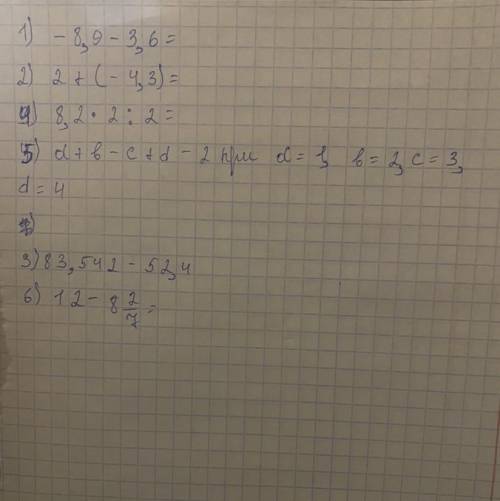 1) - 8,9 - 3,6 =
2) 2 + (- 4,3) =
4) 8,2 · 2 : 2 =
5) d + b - c + d - 2 при d = 1, b = 2, c = 3,
d = 4
3) 83,542 - 52,4
6) 12 - 8 2/7 =